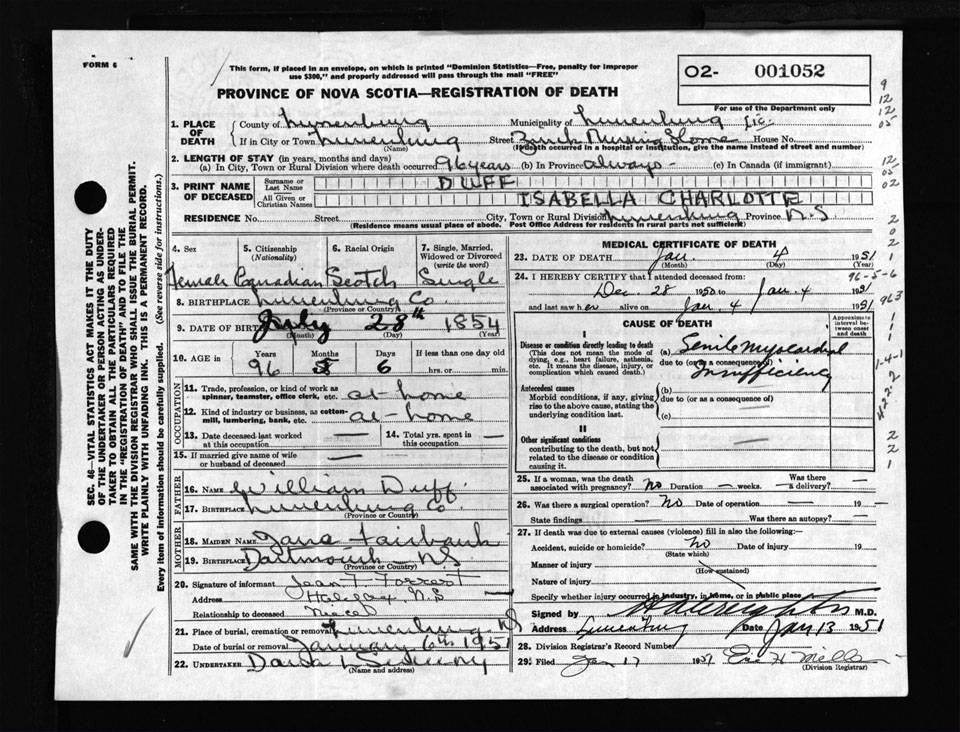 FORM 6
This form, if placed in an envelope, on which is printed "Dominion Statistics—Free, penalty for improper
use $300," and properly addressed will pass through the mail "FREE"
O2- 001052
PROVINCE OF NOVA SCOTIA—REGISTRATION OF DEATH
For use of the Department only
1. PLACE OF DEATH
County of Lunenburg Municipality of Lunenburg
If in City or Town Lunenburg Street Zinck Nursing Home House No.
(Name) (If death occurred in a hospital or institution, give the name instead of street and number)
2. LENGTH OF STAY (in years, months and days)
(a) In City, Town or Rural Division where death occurred 96 years (b) In Province always - (c) In Canada (if immigrant)
3. PRINT NAME OF DECEASED
Surname or Last Name DUFF
All Given or Christian Names ISABELLA CHARLOTTE
RESIDENCE No. Street City, Town or Rural Division Lunenburg Province N.S
(Residence means usual place of abode. Post Office Address for residents in rural parts not sufficient)
4. Sex Female
5. Citizenship (Nationality) Canadian
6. Racial Origin Scotch
7. Single, Married, Widowed or Divorced (write the word) Single
8. BIRTHPLACE Lunenburg Co.
(Province or Country)
9. DATE OF BIRTH July 28th 1854
(Month) (Day) (Year)
10. AGE in Years Months Days If less than one day old
96 5 6 hrs. or min.
OCCUPATION
11. Trade, profession, or kind of work as spinner, teamster, office clerk, etc. at-home
12. Kind of industry or business, as cotton-mill, lumbering, bank, etc. at-home
13. Date deceased last worked at this occupation —
14. Total yrs. spent in this occupation —
15. If married give name of wife or husband of deceased —
FATHER
16. Name William Duff
17. Birthplace Lunenburg Co.
(Province or Country)
MOTHER
18. MAIDEN NAME Jane Fairbank
19. BIRTHPLACE Dartmouth - NS
(Province or Country)
20. Signature of informant Jean F. Forrest
Address Halifax, N.S
Relationship to deceased Niece
21. Place of burial, cremation or removal Lunenburg NS
Date of burial or removal January 6th 1951
22. UNDERTAKER Sweeny
(Name and address)
MEDICAL CERTIFICATE OF DEATH
23. DATE OF DEATH Jan. 4 1951
(Month) (Day) (Year)
24. I HEREBY CERTIFY that I attended deceased from: 96-5-6
Dec. 28 1950 to Jan. 4 1951
and last saw her alive on Jan. 4 1951
CAUSE OF DEATH
Approximate interval between onset and death
I
Disease or condition directly leading to death
(This does not mean the mode of dying, e.g., heart failure, asthenia, etc. It means the disease, injury, or complication which caused death.)
(a) Senile Myocardial
due to (or as a consequence of)
Insufficiency
Antecedent causes
Morbid conditions, if any, giving rise to the above cause, stating the underlying condition last.
(b)
due to (or as a consequence of)
(c)
II
Other significant conditions
contributing to the death, but not related to the disease or condition causing it.
25. If a woman, was the death associated with pregnancy? No Duration — weeks. Was there a delivery? —
26. Was there a surgical operation? No Date of operation — 19
State findings — Was there an autopsy? —
27. If death was due to external causes (violence) fill in also the following:—
Accident, suicide or homicide? No Date of injury 19
(State which)
Manner of injury
(How sustained)
Nature of injury
Specify whether injury occurred in industry, in home, or in public place
Signed by M.D.
Address Lunenburg Date Jan 13 1951
28. Division Registrar's Record Number
29. Filed Jan 17 1951
(Division Registrar)
SEC. 46—VITAL STATISTICS ACT MAKES IT THE DUTY
OF THE UNDERTAKER OR PERSON ACTING AS UNDER-
TAKER TO OBTAIN ALL THE PARTICULARS REQUIRED
IN THE "REGISTRATION OF DEATH" AND TO FILE THE
SAME WITH THE DIVISION REGISTRAR WHO SHALL ISSUE THE BURIAL PERMIT.
WRITE PLAINLY WITH UNFADING INK. THIS IS A PERMANENT RECORD.
Every item of information should be carefully supplied. (See reverse side for instructions.)
9
12
12
05
12
05
02
2
0
2
1
963
1
1
1
1-4-1
2
2
1